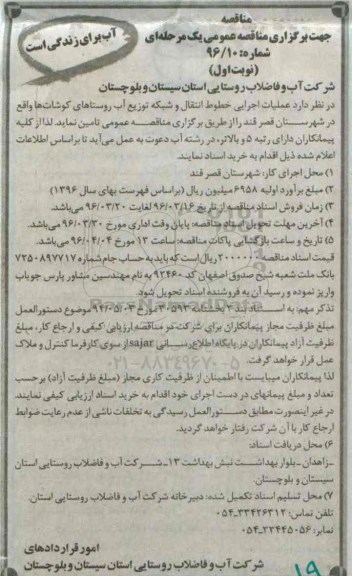 مناقصه
جهت برگزاری مناقصه عمومی یک مرحله‌ای
شماره: ۹۶/۱۰
(نوبت اول)
آب برای زندگی است
شرکت آب و فاضلاب روستایی استان سیستان و بلوچستان
در نظر دارد عملیات اجرایی خطوط انتقال و شبکه توزیع آب روستاهای کوشات‌ها واقع
در شهرستان قصر قند را از طریق برگزاری مناقصه عمومی تامین نماید. لذا از کلیه
پیمانکاران دارای رتبه ۵ و بالاتر، در رشته آب دعوت به عمل می‌آید تا براساس اطلاعات
اعلام شده ذیل اقدام به خرید اسناد نمایند.
۱) محل اجرای کار: شهرستان قصر قند
۲) مبلغ برآورد اولیه ۶۹۵۸ میلیون ریال (براساس فهرست بهای سال ۱۳۹۶)
۳) زمان فروش اسناد مناقصه از تاریخ ۹۶/۰۳/۱۶ لغایت ۹۶/۰۳/۲۰ می‌باشد.
۴) آخرین مهلت تحویل اسناد مناقصه: پایان وقت اداری مورخ ۹۶/۰۳/۳۰ می‌باشد.
۵) تاریخ و ساعت بازگشایی پاکات مناقصه: ساعت ۱۳ مورخ ۹۶/۰۴/۰۴ می‌باشد.
قیمت اسناد مناقصه ۲۰۰۰۰۰۰ ریال است که باید به حساب جام شماره ۷۲۵۰۸۹۷۷۱۷
بانک ملت شعبه شیخ صدوق اصفهان کد ۹۲۴۶۰ به نام مهندسین مشاور پارس جویاب
واریز نموده و رسید آن به فروشنده اسناد تحویل شود.
تذکر مهم: به استناد بند ۲ بخشنامه ۳۰۵۹۳ مورخ ۹۴/۰۵/۰۳ موضوع دستورالعمل
مبلغ ظرفیت مجاز پیمانکاران برای شرکت در مناقصه ارزیابی کیفی و ارجاع کار، مبلغ
ظرفیت آزاد پیمانکاران در پایگاه اطلاع‌رسانی sajar از سوی کارفرما کنترل و ملاک
عمل قرار خواهد گرفت.
لذا پیمانکاران میبایست با اطمینان از ظرفیت کاری مجاز (مبلغ ظرفیت آزاد) بر حسب
تعداد و مبلغ پیمانهای در دست اجرای خود اقدام به خرید اسناد ارزیابی کیفی نمایند.
در غیر اینصورت مطابق دستورالعمل رسیدگی به تخلفات ناشی از عدم رعایت ضوابط
ارجاع کار با آن شرکت رفتار خواهد گردید.
۶) محل دریافت اسناد:
ـ زاهدان ـ بلوار بهداشت نبش بهداشت ۱۳ ـ شرکت آب و فاضلاب روستایی استان
سیستان و بلوچستان.
۷) محل تسلیم اسناد تکمیل شده: دبیرخانه شرکت آب و فاضلاب روستایی استان.
تلفن تماس: ۳۳۴۲۶۳۱۲-۰۵۴
نمابر: ۳۳۴۴۵۰۵۶-۰۵۴
امور قراردادهای
شرکت آب و فاضلاب روستایی استان سیستان و بلوچستان
۱۹
ParsNamadData
۰۲۱-۸۸۳۴۹۶۷۰-۵